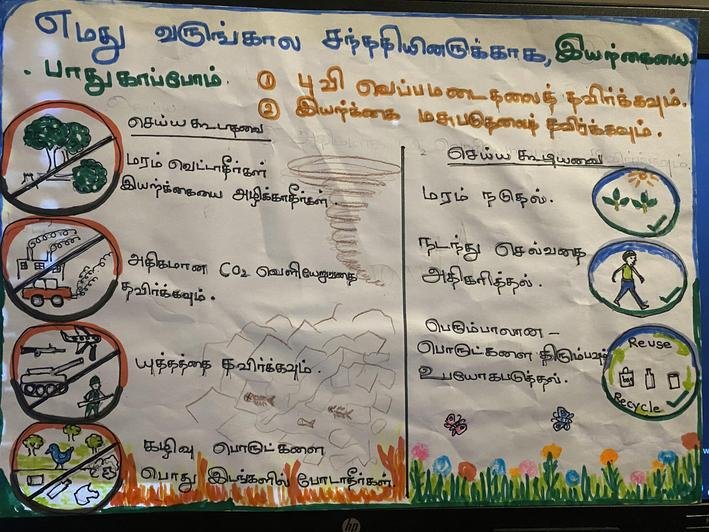 எமது வருங்கால சந்ததியினருக்காக, இயற்கையை
பாதுகாப்போம்.
① பூவி வெப்பமடைதலைத் தவிர்க்கவும்.
② இயற்கை மாசுபடுதலைத் தவிர்க்கவும்.
செய்ய கூடாதவை
மரம் வெட்டாதீர்கள்
இயற்கையை அழிக்காதீர்கள்.
அதிகமான CO₂ வெளியேறுவதை
தவிர்க்கவும்.
யுத்தத்தை தவிர்க்கவும்.
கழிவு பொருட்களை
பொது இடங்களில் போடாதீர்கள்.
செய்ய கூடியவை
மரம் நடுதல்.
நடந்து செல்வதை
அதிகரித்தல்.
பெரும்பாலான -
பொருட்களை திரும்பவும்
உபயோகபடுத்தல்.
Reuse
Recycle
hp